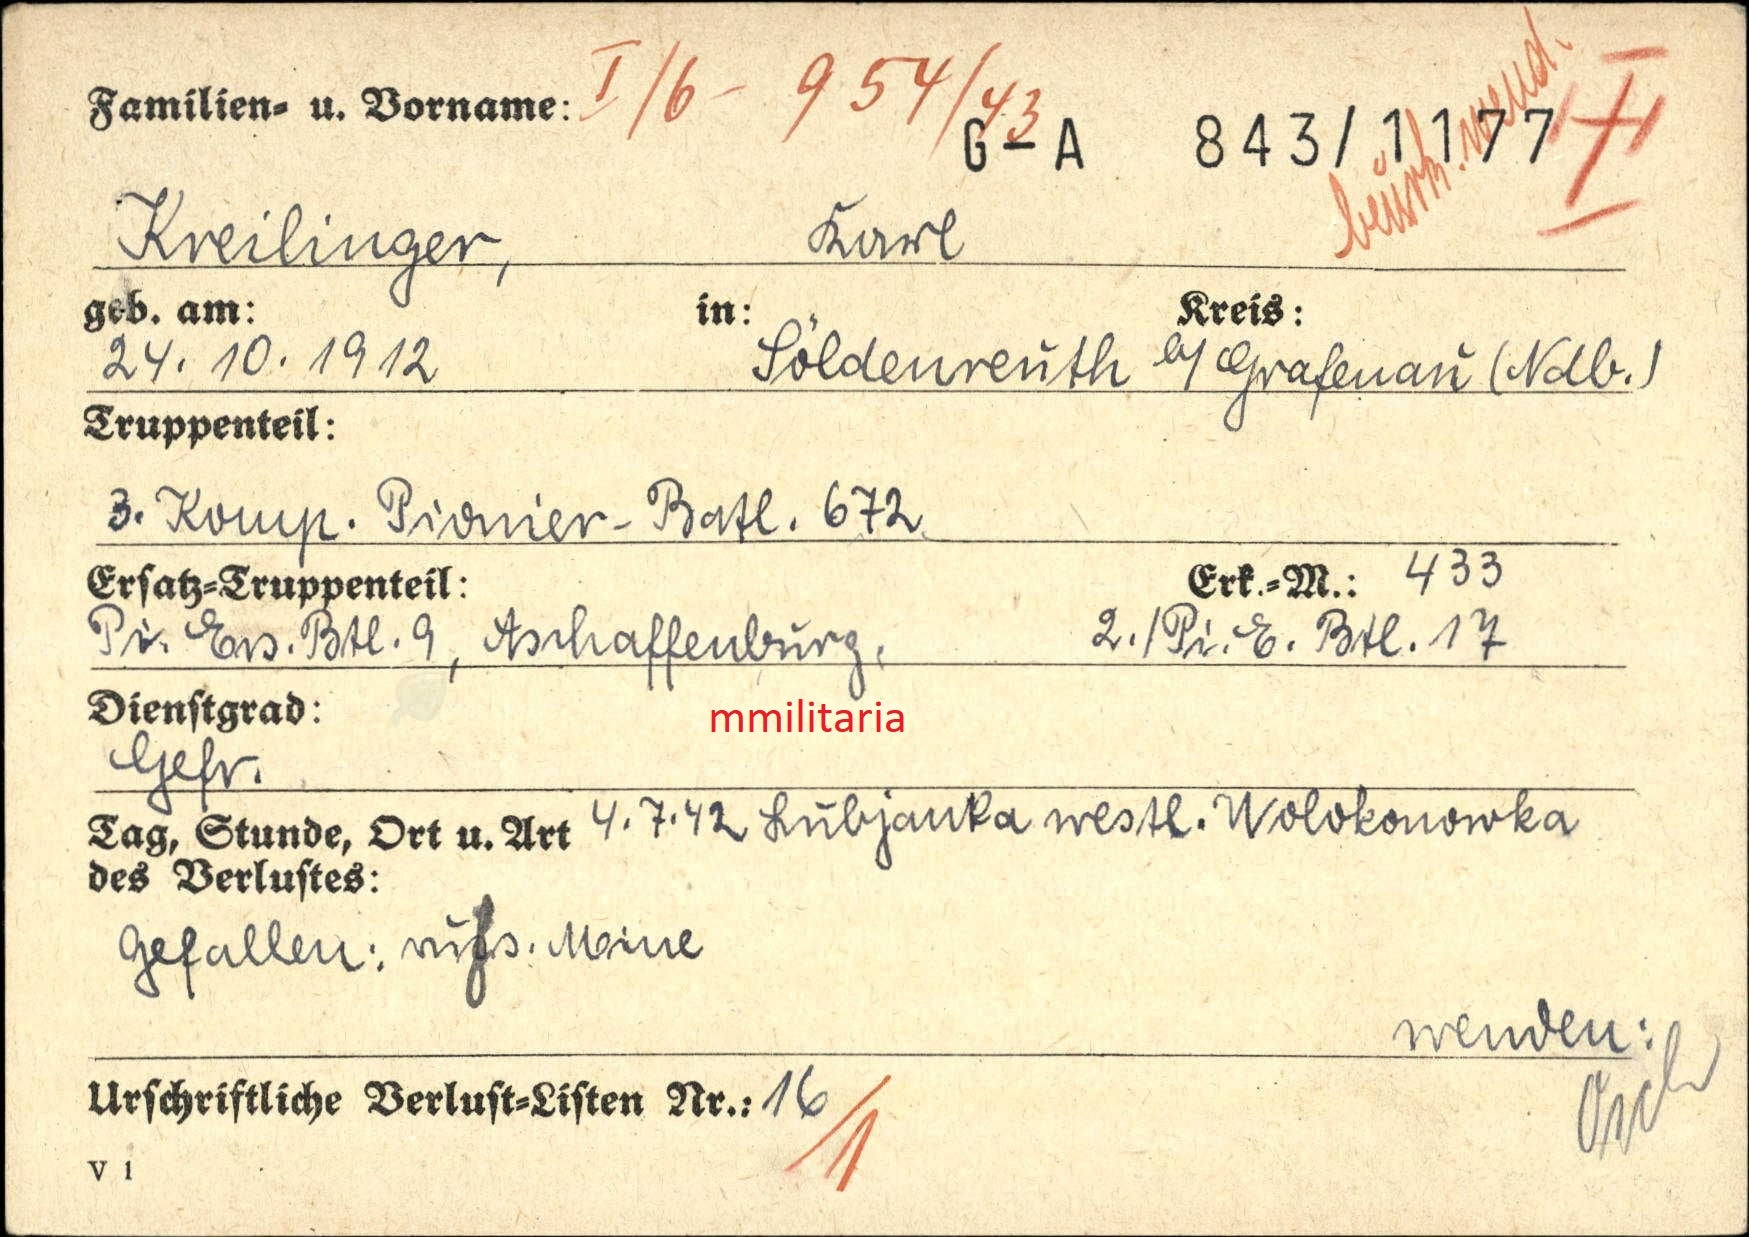 Familien- u. Vorname: I/6 - 954/43
G-A 843/1177
beurk. wend.
Kreilinger, Karl
geb. am: in: Kreis:
24. 10. 1912 Söldenreuth b/ Grafenau (Ndb.)
Truppenteil:
3. Komp. Pionier-Batl. 672
Ersatz-Truppenteil: Erk.-M.: 433
Pi. Ers. Btl. 9, Aschaffenburg. 2./Pi. E. Btl. 17
Dienstgrad:
mmilitaria
Gefr.
Tag, Stunde, Ort u. Art 4.7.42 Lubjanka westl. Wolokonowka
des Verlustes:
Gefallen: russ. Mine
wenden:
Urschriftliche Verlust-Listen Nr.: 16/1
V 1